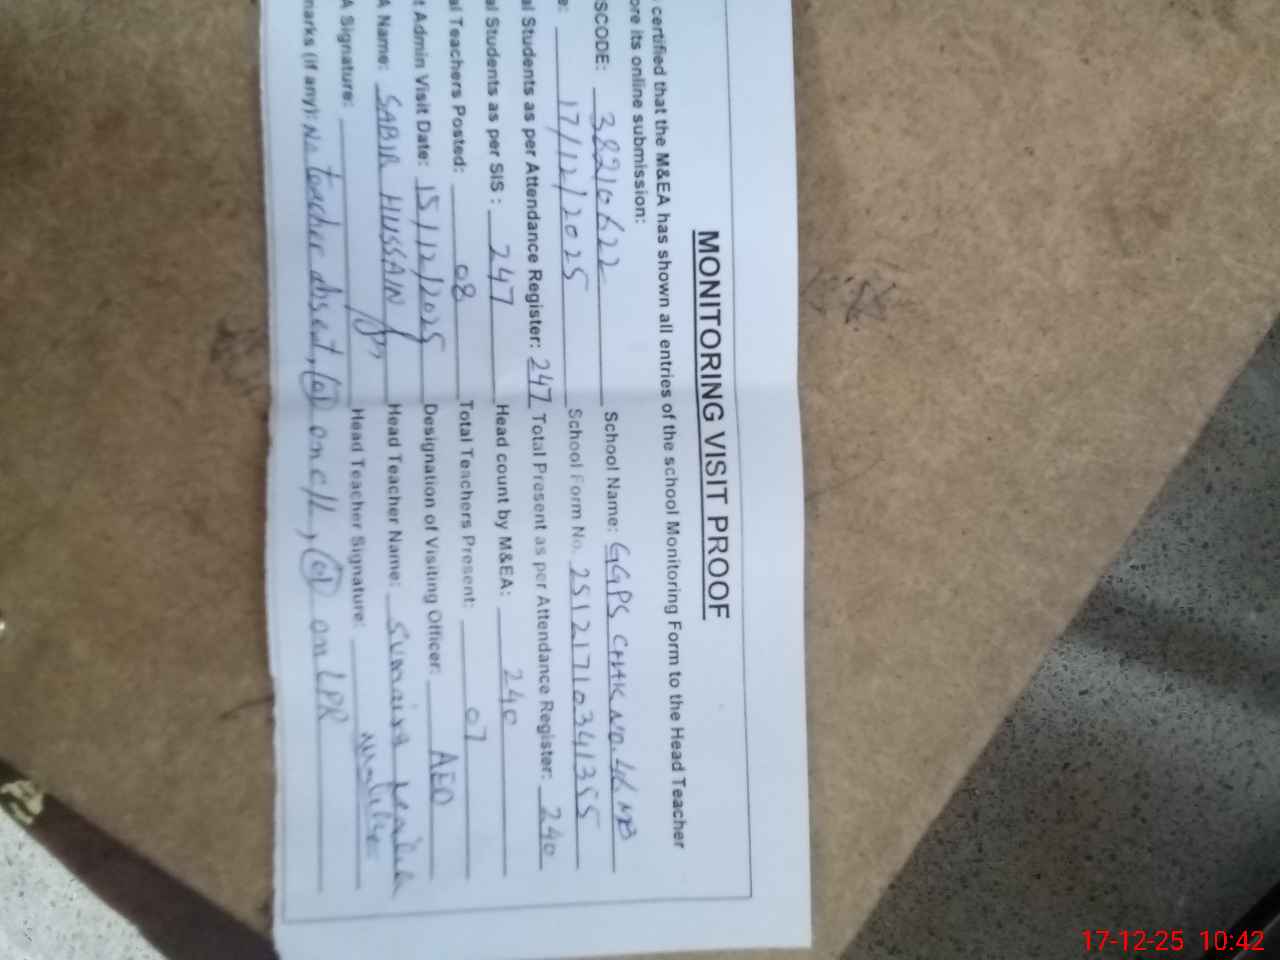 MONITORING VISIT PROOF
certified that the M&EA has shown all entries of the school Monitoring Form to the Head Teacher
ore its online submission:
SCODE: 38210622 School Name: GGPS CHAK No. NB
e: 17/12/2025 School Form No. 25121710341355
al Students as per Attendance Register: 247 Total Present as per Attendance Register: 240
al Students as per SIS: 247 Head count by M&EA: 240
al Teachers Posted: 08 Total Teachers Present: 07
t Admin Visit Date: 15/12/2025 Designation of Visiting Officer: AEO
A Name: SABIR HUSSAIN Head Teacher Name: Sumaira
A Signature: Head Teacher Signature:
marks (if any): No teacher absent, 01 on c/L, 01 on LPR
17-12-25 10:42